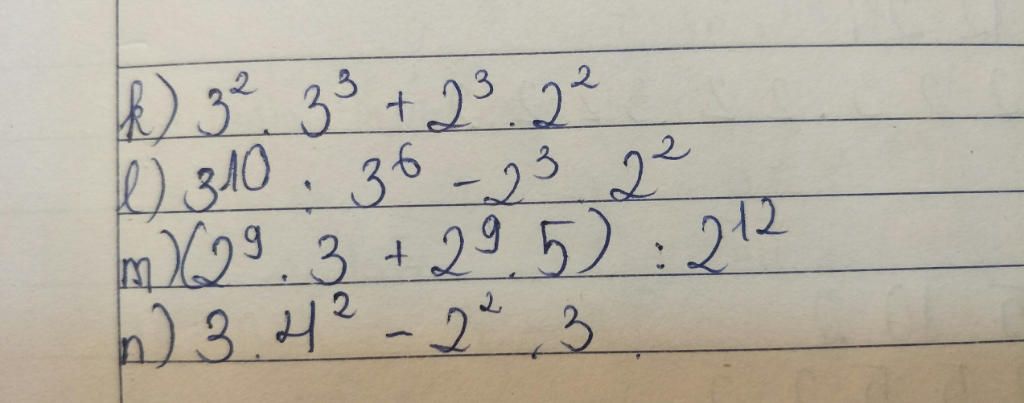 k) 3² . 3³ + 2³ . 2²
l) 3¹⁰ : 3⁶ - 2³ . 2²
m) (2⁹ . 3 + 2⁹ . 5) : 2¹²
n) 3 . 4² - 2² . 3